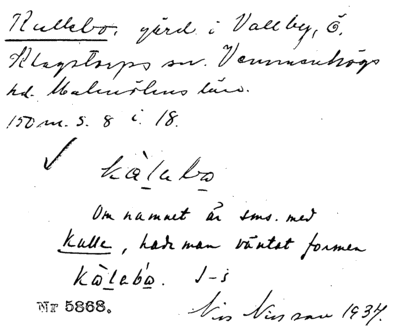 Kullabo, gård i Vallby, Ö.
Klagstorps sn. Vemmenhögs
hd. Malmöhus län.
150 m. S. 8 i. 18.
kàlabo
Om namnet är sms. med
Kulle, hade man väntat formen
kàlabò. I-s
Nils Nilsson 1937.
Nr 5868.